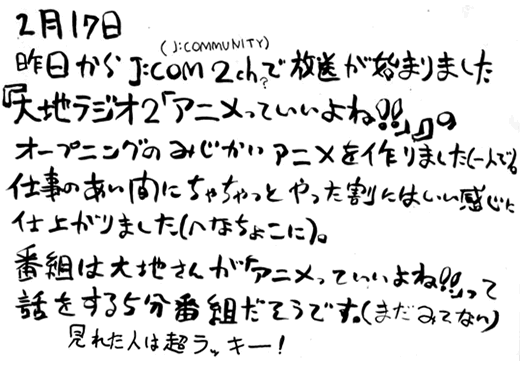 2月17日
(J:COMMUNITY)
昨日からJ:COM 2ch?で放送が始まりました
『大地ラジオ2「アニメっていいよね!!」』の
オープニングのみじかいアニメを作りました(一人で)。
仕事のあい間にちゃちゃっとやった割にはいい感じに
仕上がりました(へなちょこに)。
番組は大地さんが「アニメっていいよね!!」って
話をする5分番組だそうです。(まだみてない)
見れた人は超ラッキー!